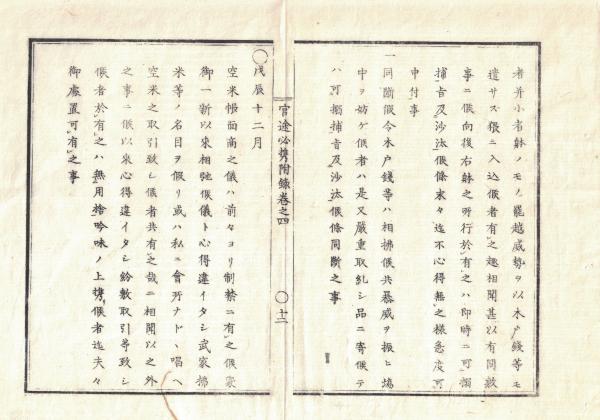 者并小者躰ノモノ罷越威勢ヲ以木戸錢等モ
遣サス猥ニ入込候者有之趣相聞甚以有間敷
事ニ候向後右躰之所行於有之ハ即時ニ可搦
捕旨及沙汰候條末々迄不心得無之樣急度可
申付事
一同斷候令木戸錢等ハ相拂候共暴威ヲ振ヒ場
中ヲ妨ケ候者ハ是又嚴重取糺シ品ニ寄候テ
ハ可搦捕旨及沙汰候條同斷之事
官途必携附錄卷之四
〇十二
〇戊辰十二月
空米帳面商之儀ハ前々ヨリ制禁ニ有之候處
御一新以來相弛候儀ト心得違イタシ武家拂
米等ノ名目ヲ假リ或ハ私ニ會所ナドヽ唱ヘ
空米之取引致シ候者共有之哉ニ相聞以之外
之事ニ候以來心得違イタシ紛敷取引等致シ
候者於有之ハ無用捨吟味ノ上携候者迄夫々
御處置可有之事